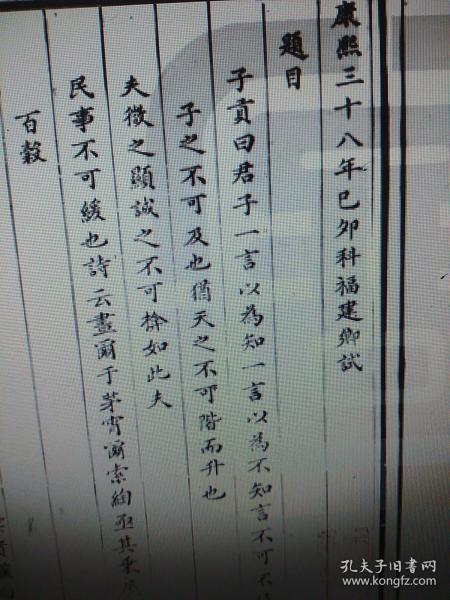 康熙三十八年己夘科福建鄉試
題目
子貢曰君子一言以為知一言以為不知言不可不
子之不可及也猶天之不可階而升也
夫微之顯誠之不可揜如此夫
民事不可緩也詩云晝爾于茅宵爾索綯亟其乗
百穀
孔夫子旧书网
www.kongfz.com